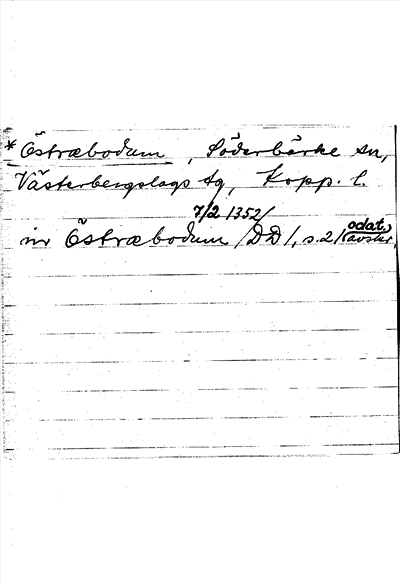 * Östræbodum, Söderbärke sn,
Västerbergslags tg, Kopp. l.
7/2 1352/
in Östræbodum /DD 1, s. 2/ odat.
avskr.